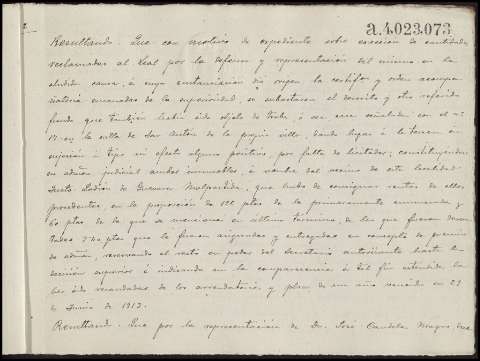 a.4023.073
Resultando. Que con motivo de expediente sobre exacción de cantidades
reclamadas al Leal por la defensa y representación del mismo en la
aludida causa, á cuya sustanciación dió origen la certifon y orden
materia emanadas de la superioridad, se subastaron el devuelto y otro referido
fundo que también había sido objeto de traba, ó sea casa señalada con el no
17 en la calle de San Antón de la propia villa, dando lugar á la tercera
sujeción á tipo sin efecto alguno positivo, por falta de licitador; constituyéndose
en admon judicial ambos inmuebles, á nombre del vecino de esta localidad
Justo de Guevara Malpartida, que hubo de consignar rentas de ellos
procedentes, en la proporción de 122 ptas de la primeramente enumerada y
60 ptas de la que se menciona en último término, de las que fueron
7'40 ptas que le fueron asignadas y entregadas en concepto de premio
de admon, reservando el resto en poder del Secretario autorizante hasta la
decisión superior é indicando en la comparecencia á tal fin extendida,
sido recaudadas de los arrendatarios y plazo de un año vencido en 29
de Junio de 1913.
Resultando. Que por la representación de Dn. José Candela